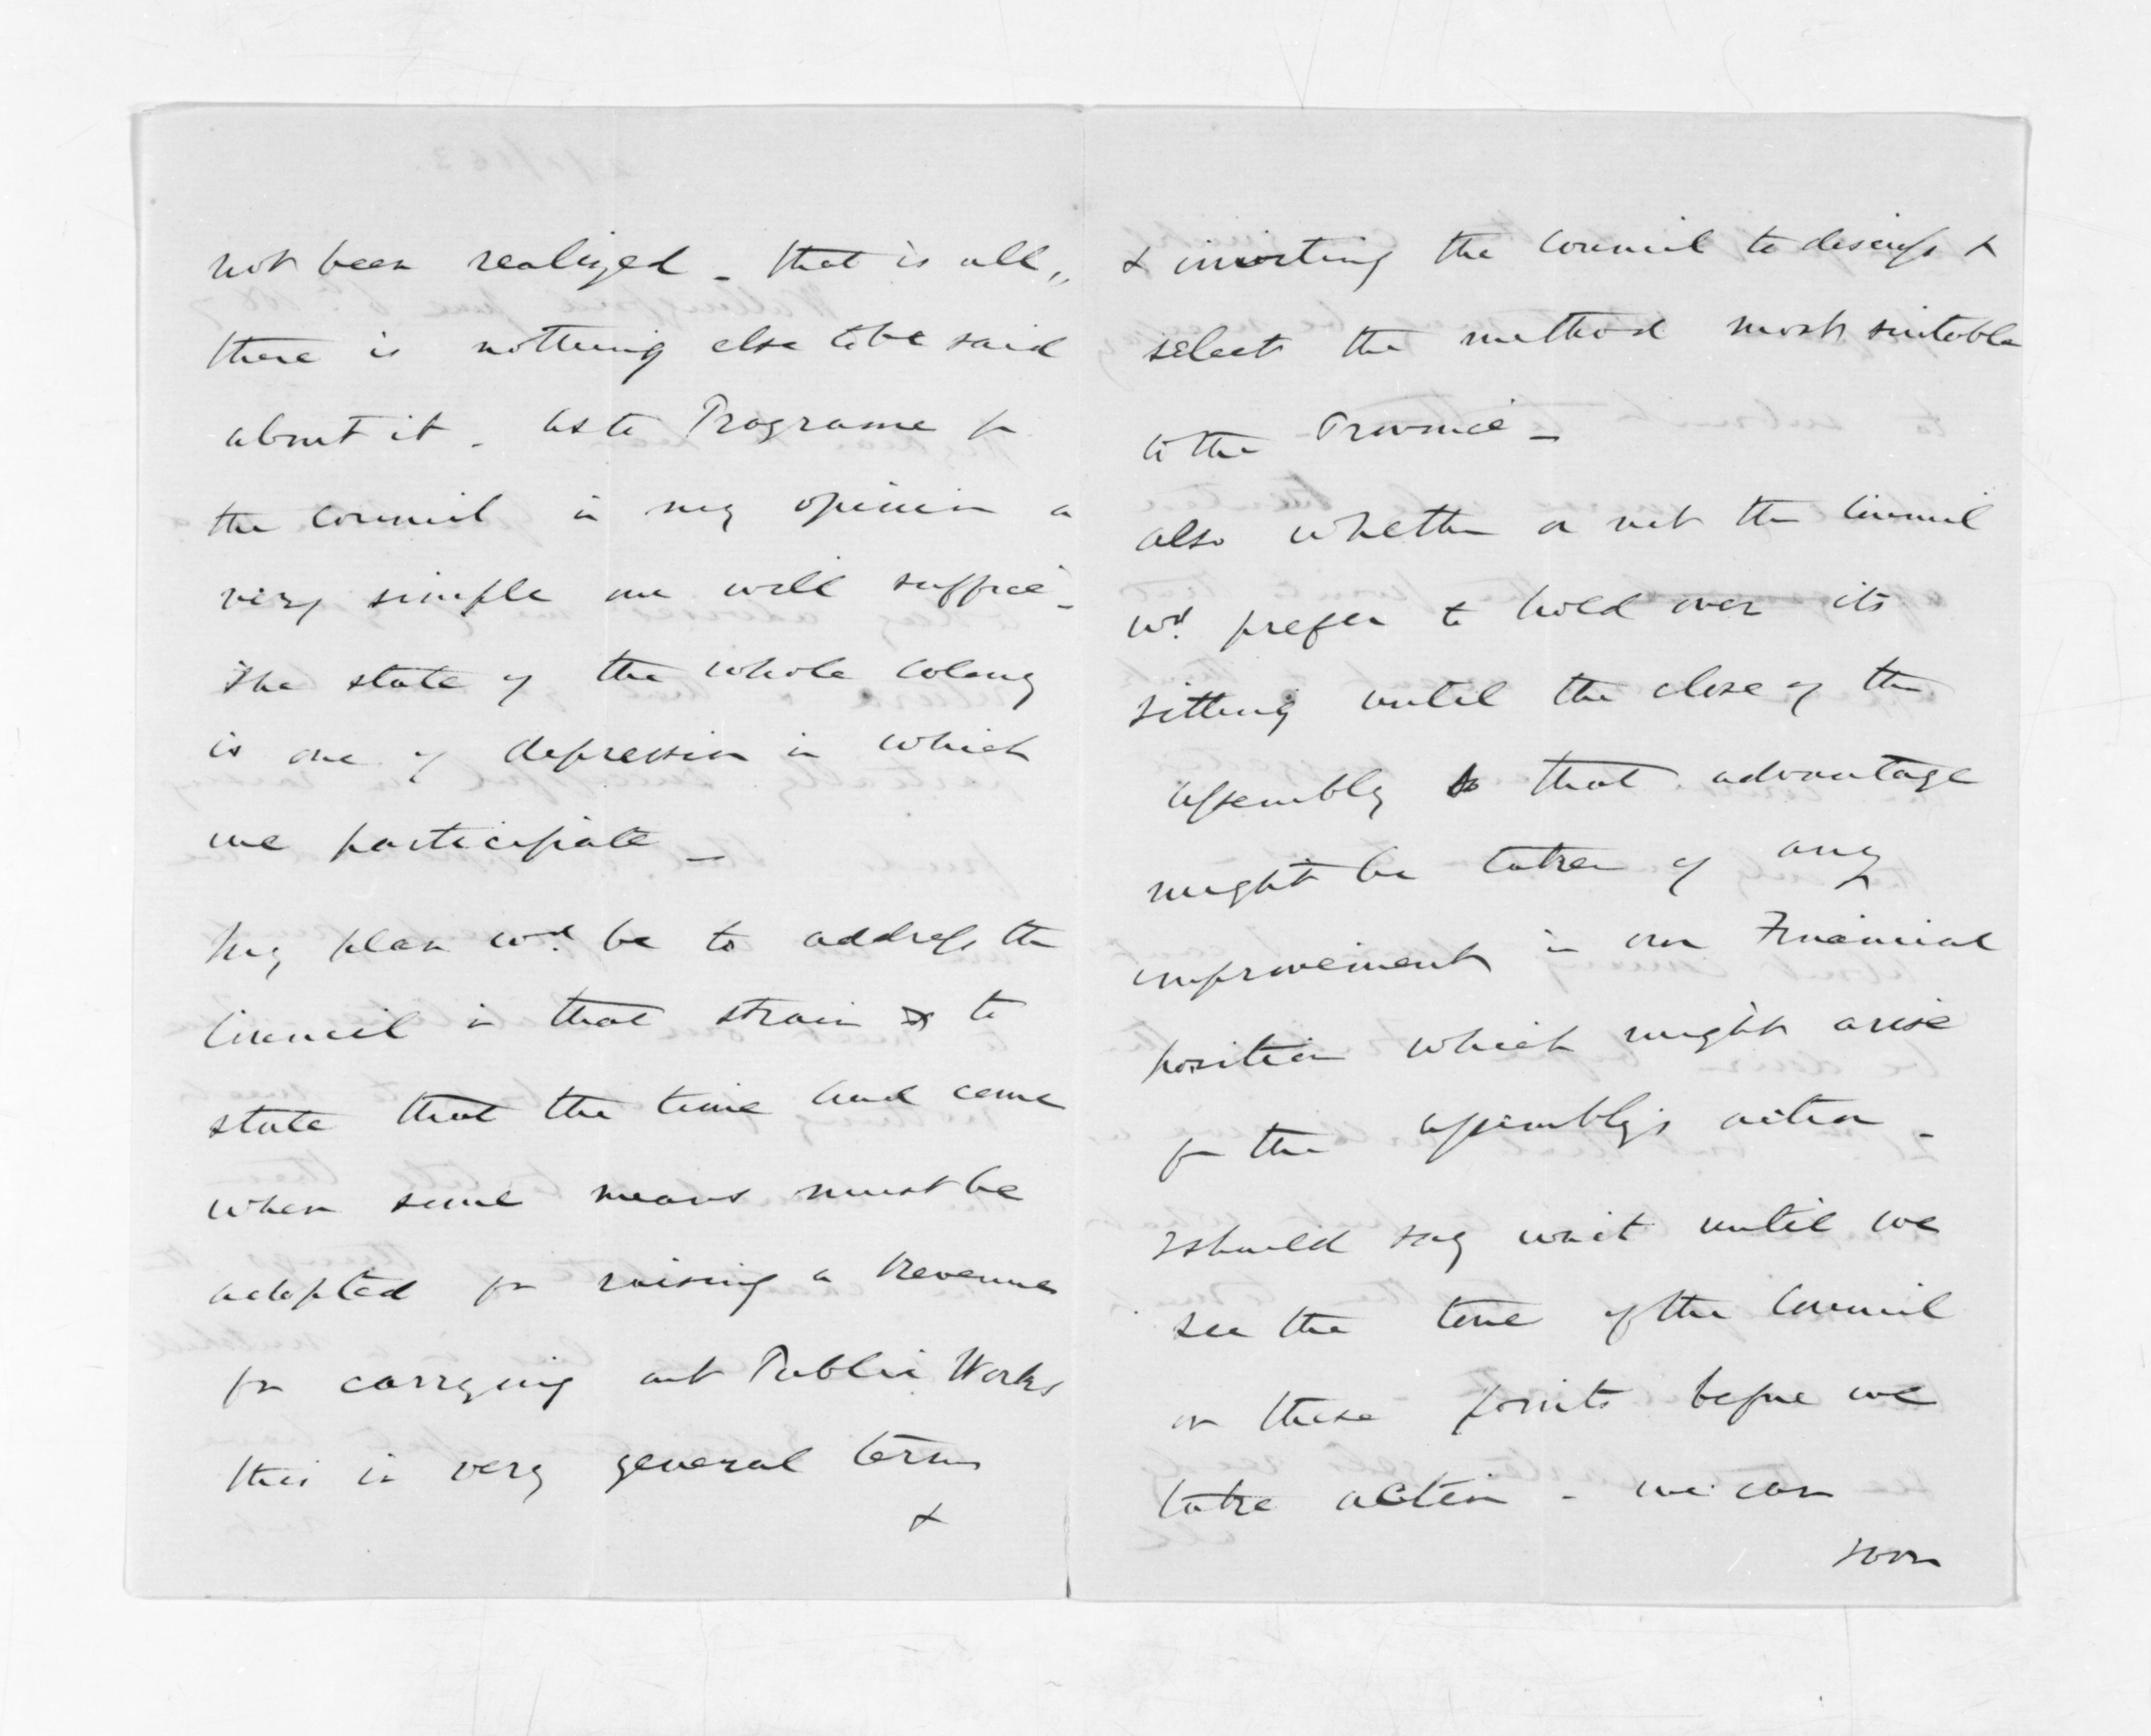 not been realized - that is all,,
there is nothing else to be said
about it. As to Programe for
the Council in my opinion a
very simple one will suffice -
The state of the whole Colony
is one of depression in which
we participate -
My plan wd. be to address the
Council in that strain & to
state that the time had come
when some means must be
adopted for raising a Revenue
for carrying out Public Works
this in very general terms
&
& inviting the Council to discuss &
select the method most suitable
to the Province -
also whether or not the Council
wd. prefer to hold over its
sitting until the close of the
Assembly so that advantage
might be taken of any
improvement in our Financial
position which might arise
from the Assembly's action -
I should say wait until we
see the tone of the Council
on these points before we
take action - we can
soon